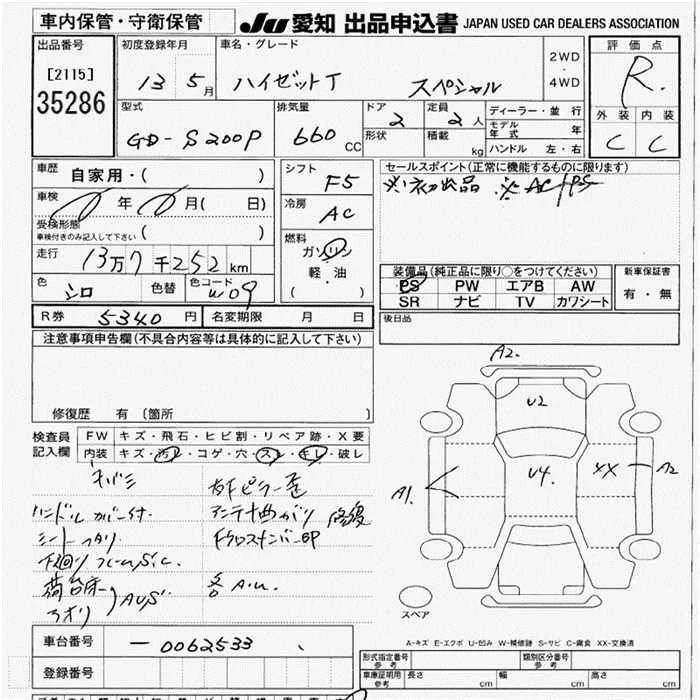 車内保管・守衛保管
JU 愛知 出品申込書 JAPAN USED CAR DEALERS ASSOCIATION
出品番号
[2115]
35286
初度登録年月
13 年 5 月
車名・グレード
ハイゼットT スペシャル
2WD
・
4WD
評価点
R.
外装 内装
C C
型式
GD-S200P
排気量
660 CC
ドア
2
形状
定員
2 人
積載
kg
ディーラー・並行
モデル年式 年
ハンドル 左・右
車歴
自家用・( )
車検
年 月( 日)
受検形態
車検付きのみ記入して下さい ( )
走行
13万7千252km
色
シロ
色替
色コード
W09
シフト
F5
冷房
AC
燃料
ガソリン
軽・油
( )
セールスポイント(正常に機能するものに限ります)
※初出品 ※AC/PS
装備品(純正品に限り○をつけてください)
PS PW エアB AW
SR ナビ TV カワシート
新車保証書
有・無
R券 5340 円
名変期限 月 日
後日品
注意事項申告欄(不具合内容等は具体的に記入して下さい)
修復歴 有〔箇所 〕
検査員
記入欄
FW キズ・飛石・ヒビ割・リペア跡・X要
内装 キズ・汚レ・コゲ・穴・スレ・キレ・破レ
ハンドルカバー付.
アンテナ曲がり
下廻りフレームS.C.
荷台床
アオリ
AUS
各A.U.
修復
A2.
U2
U4.
XX
A2
A1.
スペア
A-キズ E-エクボ U-凹み W-補修跡 S-サビ C-腐食 XX-交換済
車台番号
-0062533
登録番号
形式指定番号
参考
類別区分番号
参考
車庫証明用
参考
長さ cm
幅 cm
高さ cm